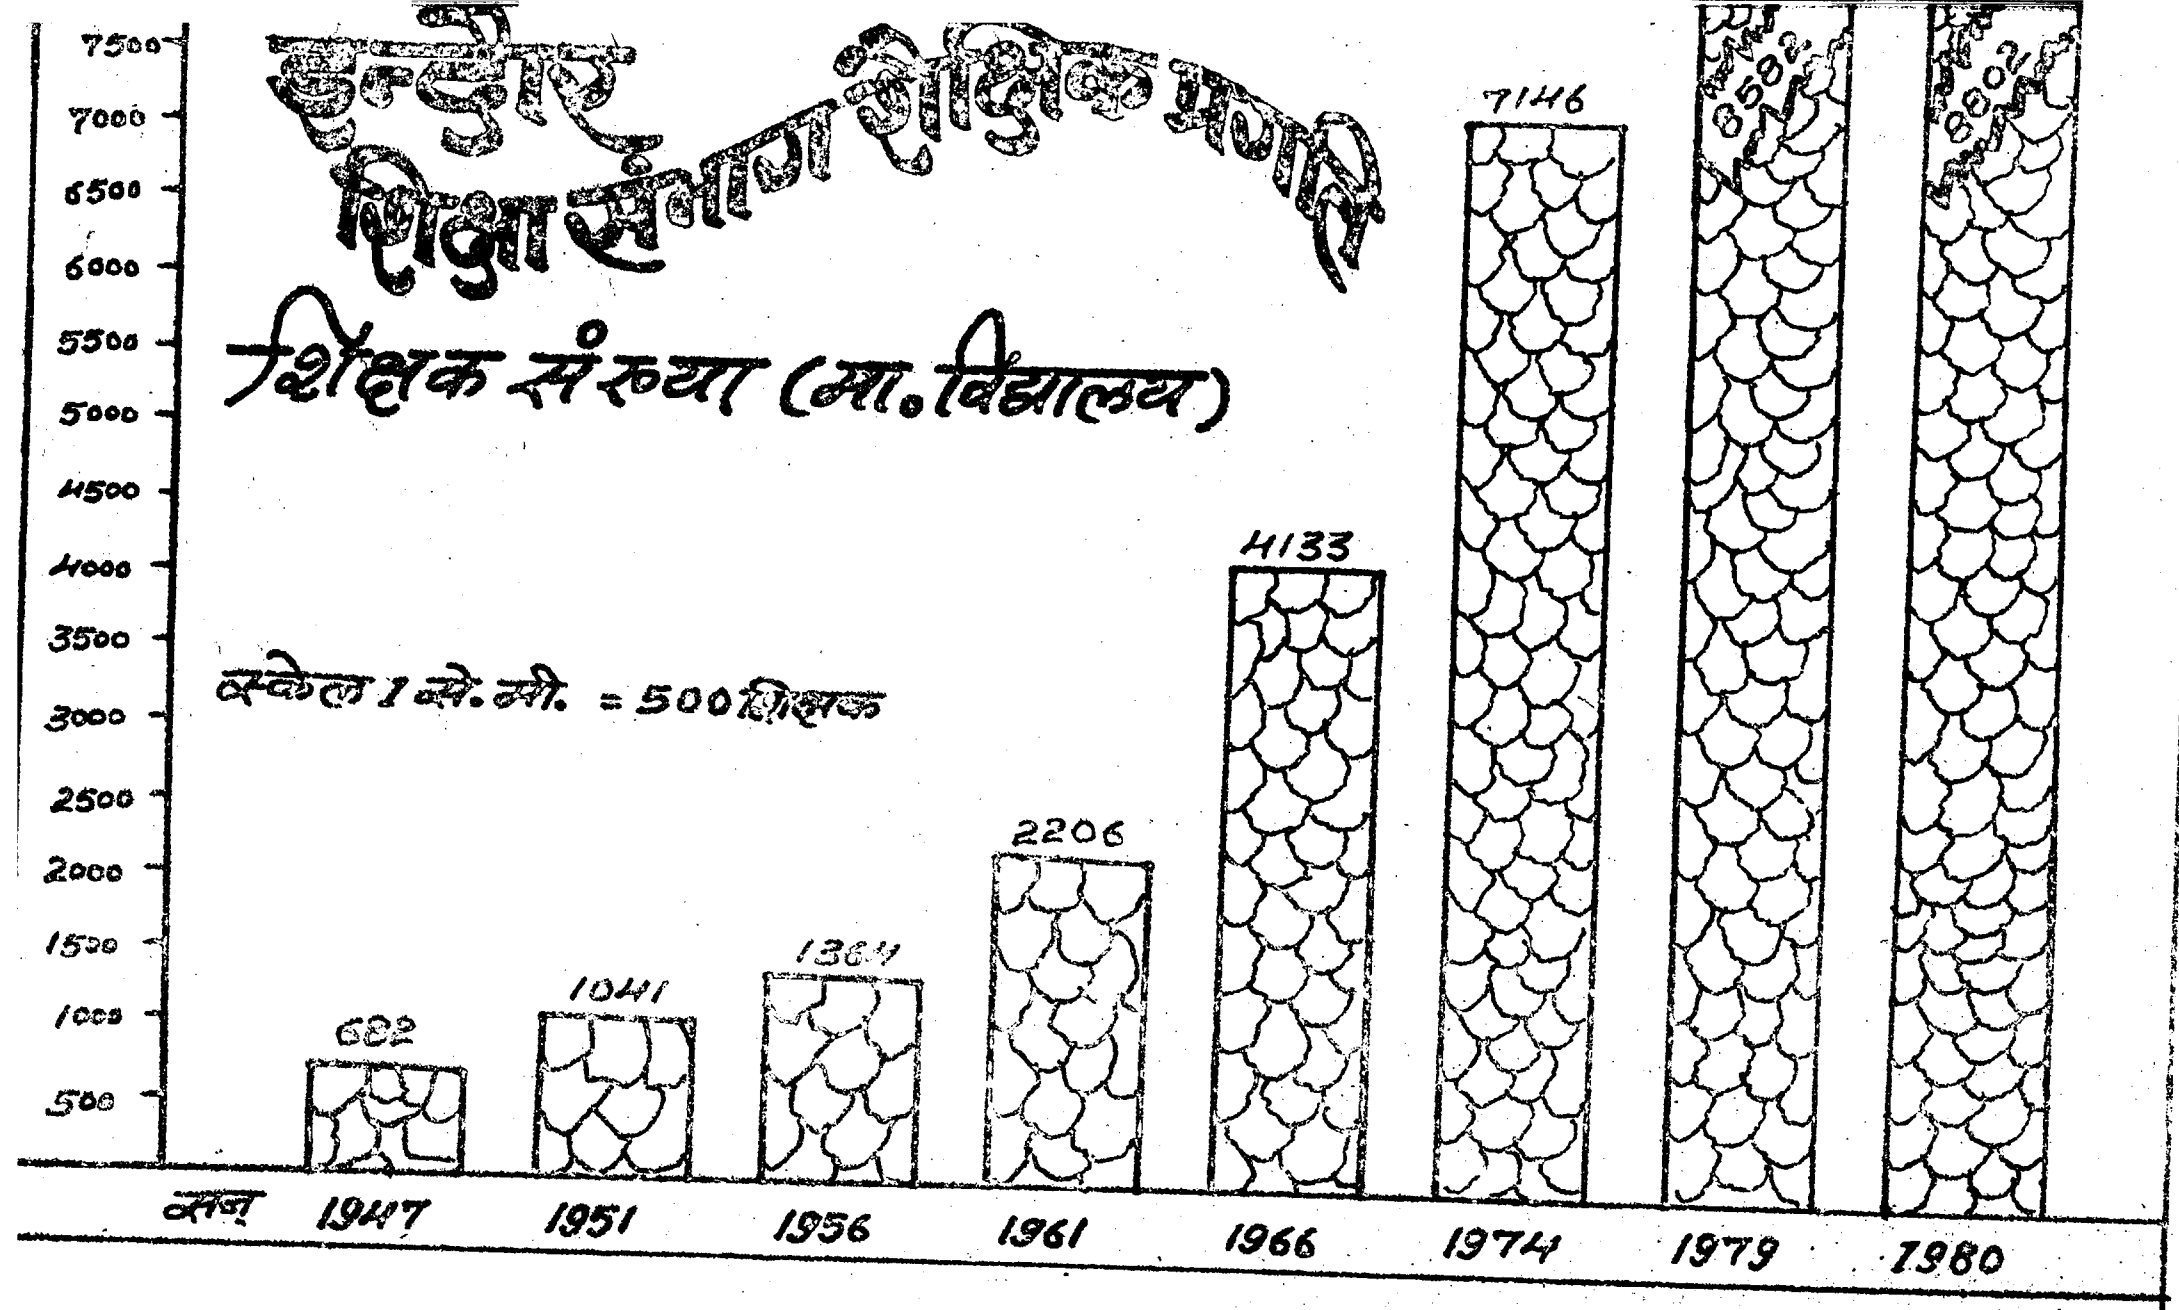 इन्दौर
शिक्षा संभाग शैक्षिक प्रगति
शिक्षक संख्या (मा. विद्यालय)
स्केल 1 से.मी. = 500 शिक्षक
7500
7000
6500
6000
5500
5000
4500
4000
3500
3000
2500
2000
1500
1000
500
682
1041
1364
2206
4133
7146
8582
8802
सन् 1947 1951 1956 1961 1966 1974 1979 1980